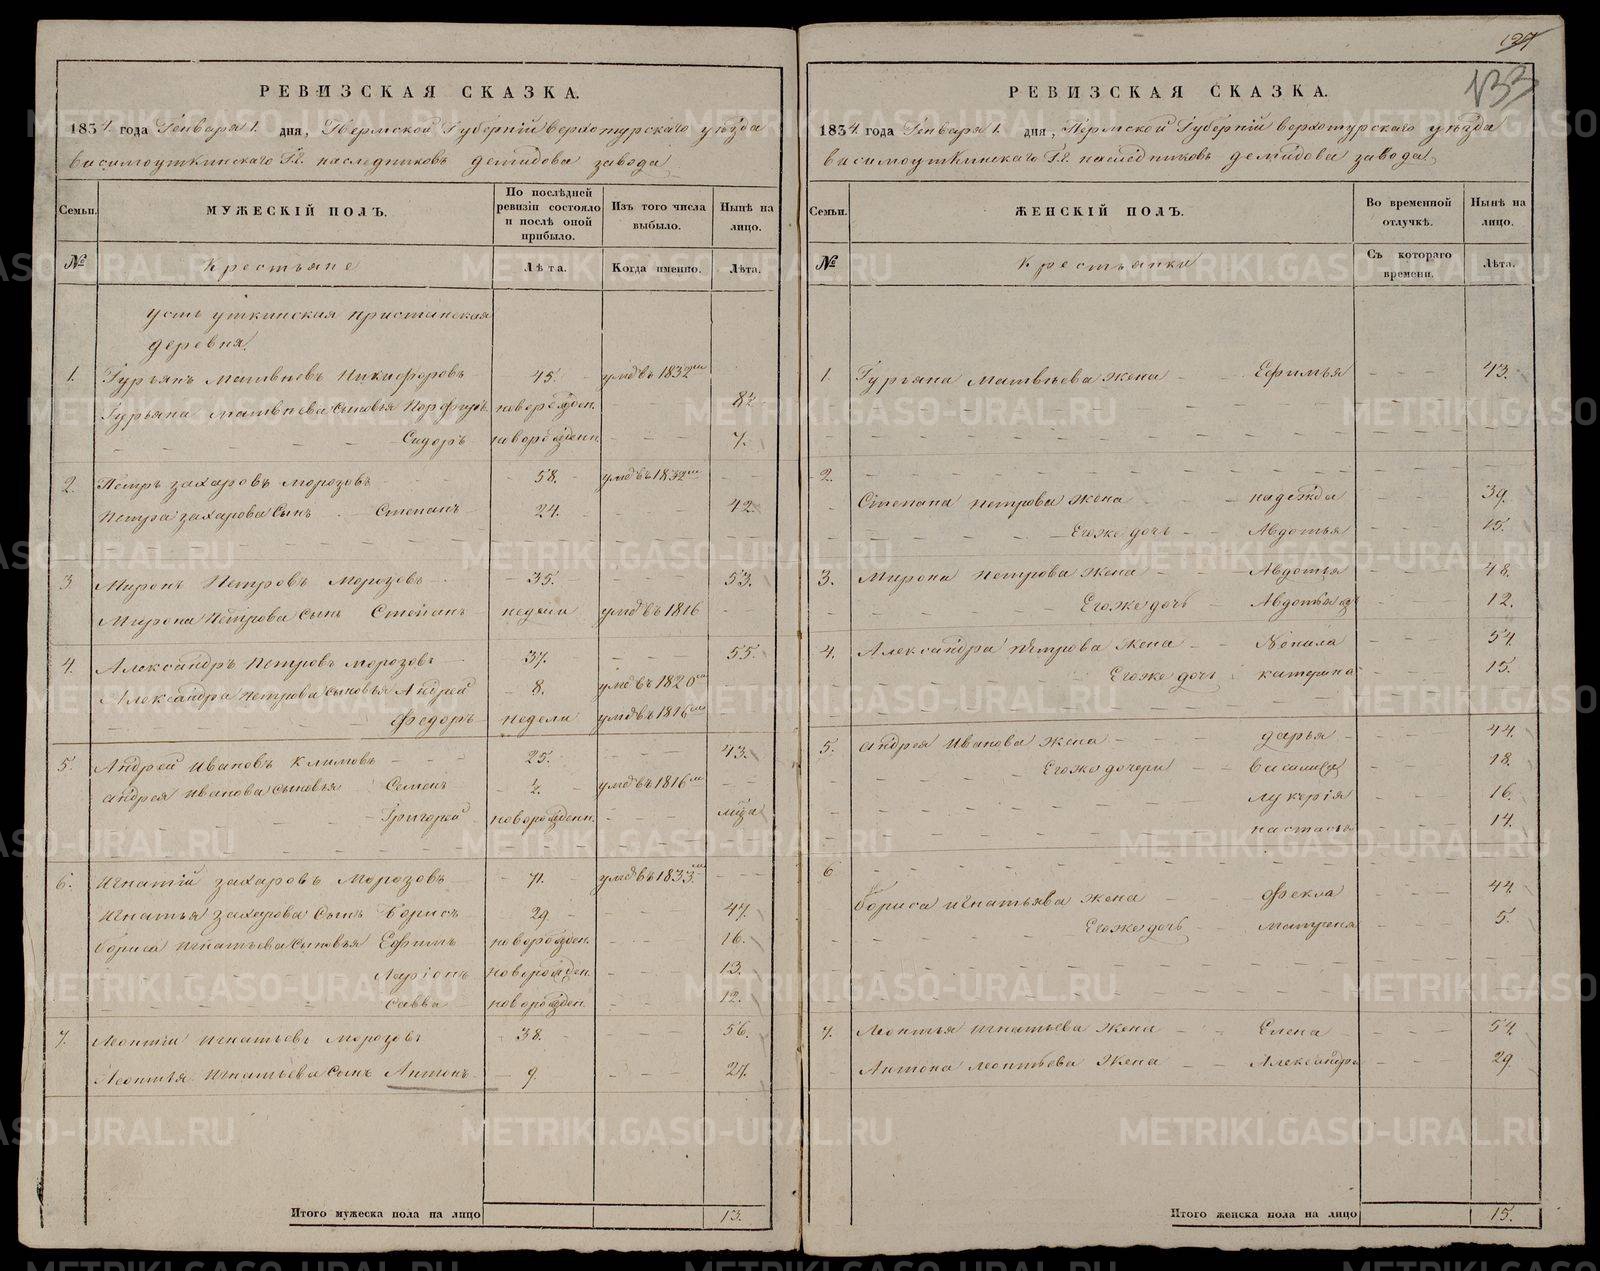 РЕВИЗСКАЯ СКАЗКА.
1834. года Генваря 1. дня, Пермской Губернiи верхотурскаго уѣзда
висимоуткинскаго Г.Г. наслѣдниковъ демидова завода
Семьи. МУЖЕСКIЙ ПОЛЪ. По послѣдней ревизiи состояло и послѣ оной прибыло. Изъ того числа выбыло. Нынѣ на лицо.
№ Крестьяне Лѣта. Когда именно. Лѣта.
усть уткинская пристанская
деревня
1. Гурьянъ Матвѣевъ Никифоровъ 45. умро въ 1832
Гурьяна Матвѣева сыновья новорожден. 8½
Сидоръ новорожденн. 7.
2. Петръ захаровъ морозовъ 58. умро въ 1832
Петра захарова сынъ Степанъ 24. 42.
3 Миронъ Петровъ Морозовъ 35. 53.
Мирона Петрова сынъ Степанъ недели умро въ 1816
4. Александръ Петровъ Морозовъ 37. 55.
Александра Петрова сыновья Андрей 8. умро въ 1820
Федоръ недели умро въ 1816
5. Андрей Ивановъ Климовъ 25. 43.
андрея Иванова сыновья Семенъ ½. умро въ 1816
Григорей новорожденн.
6. Игнатiй захаровъ Морозовъ 71. умро въ 1833
Игнатья захарова сынъ Борисъ 29. 47.
бориса игнатьева сыновья Ефимъ новорожден. 16.
Ларiонъ новорожден. 13.
Савва новорожден. 12.
7. Леонтiй игнатьевъ Морозовъ 38. 56.
Леонтья Игнатьева сынъ Антонъ 9. 27.
Итого мужеска пола на лицо 13.
127
133
РЕВИЗСКАЯ СКАЗКА.
1834 года Генваря 1. дня, Пермской Губернiи верхотурскаго уѣзда
висимоуткинскаго Г.Г. наслѣдниковъ демидова завода
Семьи. ЖЕНСКIЙ ПОЛЪ. Во временной отлучкѣ. Нынѣ на лицо.
№ Крестьянки Съ котораго времени. Лѣта.
1. Гурьяна Матвѣева жена Ефимья 43.
2.
Степана петрова жена надежда 39.
Егоже дочь Авдотья 15.
3. Мирона петрова жена Авдотья 48.
Егоже дочь Авдотья 12.
4. Александра петрова жена Ненила 54.
Егоже дочь катерина 15.
5. андрея Иванова жена дарья 44.
Егоже дочери василиса 18.
лукерiя 16.
настасья 14.
6
бориса игнатьева жена Фекла 44.
Егоже дочь матрена 5.
7. Леонтья игнатьева жена Елена 54.
Антона леонтьева жена Александра 29.
Итого женска пола на лицо 15.
METRIKI.GASO-URAL.RU